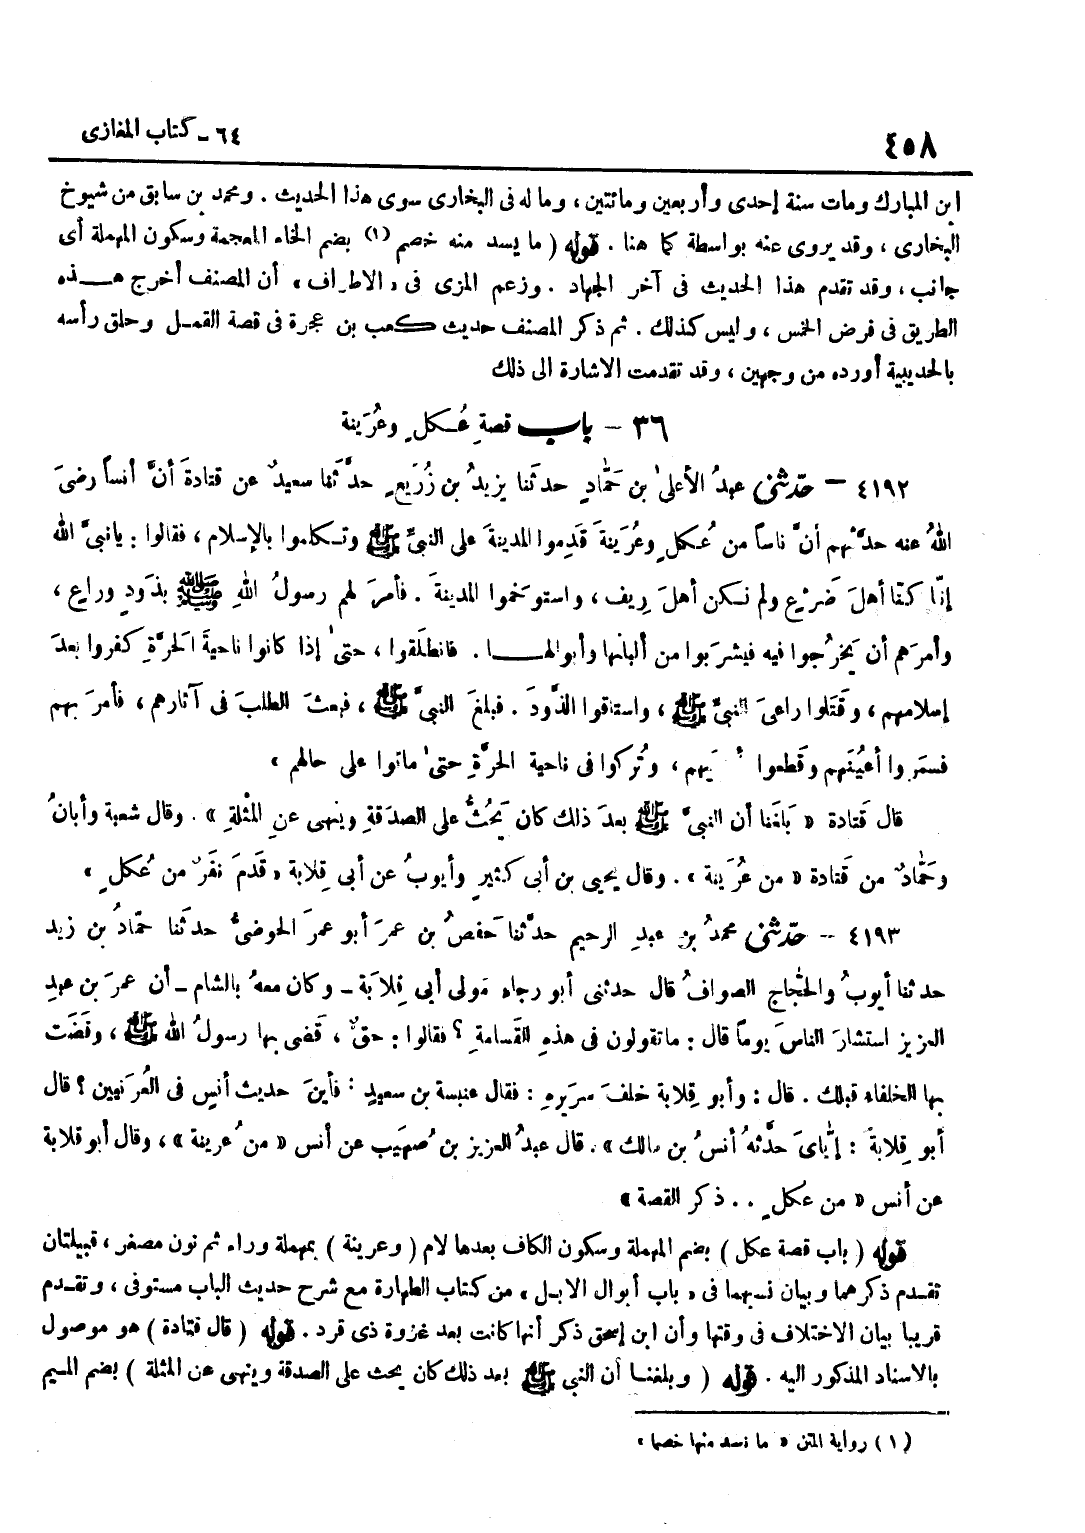 ٤٥٨ ٦٤ - كتاب المغازى
ابن المبارك ومات سنة إحدى وأربعين ومائتين ، وما له فى البخارى سوى هذا الحديث . ومحمد بن سابق من شيوخ
البخارى ، وقد يروى عنه بواسطة كما هنا . قوله ( ما يسد منه خصم (١) بضم الخاء المعجمة وسكون المهملة أى
جانب ، وقد تقدم هذا الحديث فى آخر الجهاد . وزعم المزى فى « الاطراف » أن المصنف أخرج هـــذه
الطريق فى فرض الخمس ، وليس كذلك . ثم ذكر المصنف حديث كعب بن عجرة فى قصة القمـل وحلق رأسه
بالحديبية أورده من وجهين ، وقد تقدمت الاشارة الى ذلك
٣٦ - باب قصةِ عُـكلٍ وعُرَينة
٤١٩٢ - حدّثنى عبدُ الأعلىٰ بن حَمّادٍ حدثَنا يزيدُ بن زُرَيعٍ حدَّثَنا سعيدٌ عن قتادةَ أنَّ أنساً رضىَ
اللهُ عنه حدَّثهم أنَّ ناساً من عُكلٍ وعُرَينةَ قَدِموا المدينةَ على النبىِّ ﷺ وتـكلموا بالإسلام ، فقالوا : يانبىَّ الله
إنّا كنّا أهلَ ضَرْعٍ ولم نـكن أهلَ رِيف ، واستوخَموا المدينةَ . فأمرَ لهم رسولُ اللهِ ﷺ بذَودٍ وراعٍ ،
وأمرَهم أن يَخرُجوا فيه فيشرَبوا من ألبانها وأبوالهـــا . فانطلَقوا ، حتىٰ إذا كانوا ناحيةَ الحَرَّةِ كفروا بعدَ
إسلامهم ، وقَتَلوا راعىَ النبىِّ ﷺ ، واستاقوا الذَّودَ . فبلغَ النبىَّ ﷺ ، فبعثَ الطلبَ فى آثارهم ، فأمرَ بهم
فسمَروا أعيُنَهم وقَطعوا أيديَهم ، وتُركوا فى ناحية الحَرَّةِ حتىٰ ماتوا على حالهم »
قال قَتادة « بَلغَنا أن النبىَّ ﷺ بعدَ ذلك كان يَحُثُّ على الصدَقةِ وينهى عنِ المُثْلةِ » . وقال شعبة وأبانُ
وحَمّادٌ من قَتادة « من عُرَينة » . وقال يحيى بن أبى كثيرٍ وأيوبُ عن أبى قِلابة « قَدمَ نفَرٌ من عُكلٍ »
٤١٩٣ - حدّثنى محمدُ بن عبدِ الرحيم حدَّثنا حَفصُ بن عمرَ أبو عمرَ الحَوضىُّ حدثَنا حمّادُ بن زيد
حدثنا أيوبُ والحَجّاج الصوافُ قال حدثنى أبو رجاءٍ مَولى أبى قِلابَة ـ وكان معهُ بالشام ـ أن عمرَ بن عبدِ
العزيز استشارَ الناسَ يوماً قال : ماتقولون فى هذهِ القَسامةِ ؟ فقالوا : حقٌّ ، قَضى بها رسولُ الله ﷺ ، وقضَت
بها الخلفاء قبلك . قال : وأبو قِلابة خلفَ سريرِهِ : فقال عنبسة بن سعيدٍ : فأينَ حديث أنسٍ فى العُرَنيين ؟ قال
أبو قِلابةَ : إيّاىَ حدَّثهُ أنسُ بن مالك » . قال عبدُ العزيز بن صُهَيب عن أنس « من عُرينة » ، وقال أبو قلابة
عن أنس « من عكلٍ . . ذكر القصة »
قوله ( باب قصة عكل ) بضم المهملة وسكون الكاف بعدها لام ( وعرينة ) بمهملة وراء ثم نون مصغر ، قبيلتان
تقـدم ذكرهما وبيان نسبهما فى « باب أبوال الابـل » من كتاب الطهارة مع شرح حديث الباب مستوفى ، وتقـدم
قريبا بيان الاختلاف فى وقتها وأن ابن إسحق ذكر أنها كانت بعد غزوة ذى قرد . قوله ( قال قتادة ) هو موصول
بالاسناد المذكور اليه . قوله ( وبلغنـا أن النبي ﷺ بعد ذلك كان يحث على الصدقة وينهى عن المثلة ) بضم المـيم
(١) رواية المتن « ما نسد منها خصما »